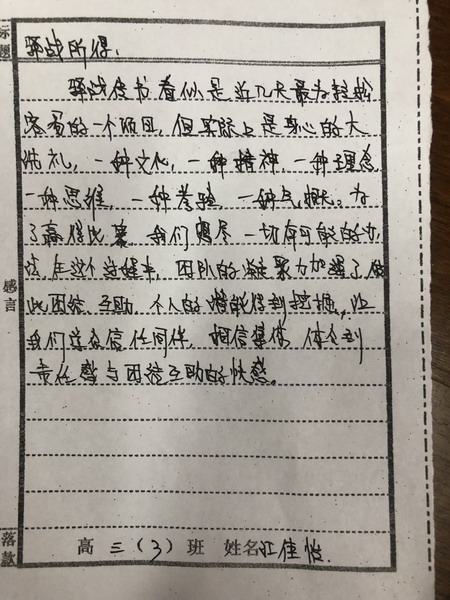 标题
驿战所得.
驿战传书看似是近几天最为轻松
容易的一个项目,但实际上是身心的大
洗礼,一种文化,一种精神,一种理念
一种思维,一种考验,一种气概。为
了赢得比赛,我们想尽一切有可能的办
法,在这个过程中,团队的凝聚力加强了,彼
此团结、互助,个人的潜能得到挖掘,让
我们学会信任同伴,相信集体,体会到
责任感与团结互助的快感。
感言
落款
高三(3)班 姓名 江佳怡